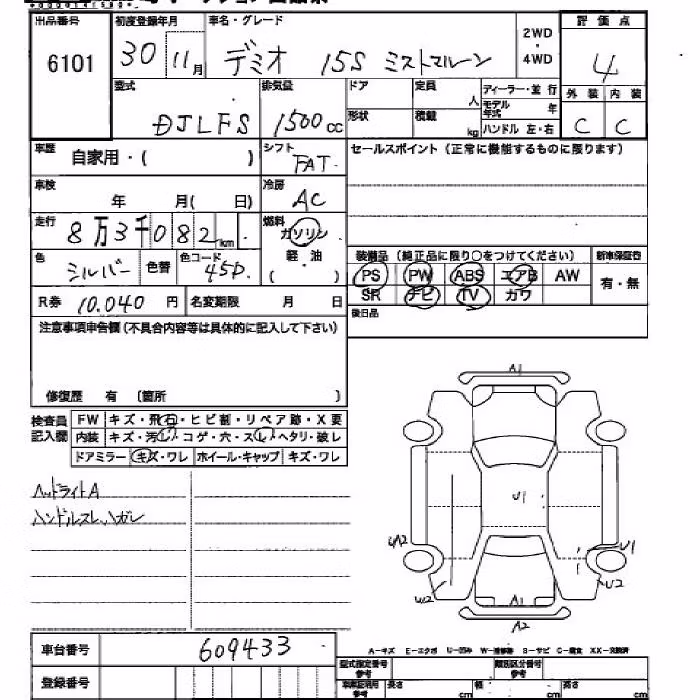 出品番号 初度登録年月 車名・グレード 2WD・4WD 評価点
6101 30 11月 デミオ 15S ミストマルーン 4
型式 排気量 ドア 定員 人 ディーラー・並行
モデル年式 年 外装 内装
DJLFS 1500cc 形状 積載 kg ハンドル 左・右 C C
車歴 自家用・( ) シフト FAT セールスポイント(正常に機能するものに限ります)
車検 年 月( 日) 冷房 AC
走行 8万3千082km 燃料 ガソリン
軽・油
( )
色 シルバー 色替 色コード 45P 装備品(純正品に限り○をつけてください) 新車保証書
PS PW ABS エアB AW 有・無
R券 10,040円 名変期限 月 日 SR ナビ TV カワ
注意事項申告欄(不具合内容等は具体的に記入して下さい) 後日品
修復歴 有 〔箇所 〕
検査員記入欄 FW キズ・飛石・ヒビ割・リペア跡・X要
内装 キズ・汚レ・コゲ・穴・スレ・ヘタリ・破レ
ドアミラー キズ・ワレ ホイール・キャップ キズ・ワレ
ヘッドライトA
ハンドルスレ、ハガレ
A1
U1
A2 U1
W2 U2
A1
A2
車台番号 609433
A-キズ E-エクボ U-凹み W-補修跡 S-サビ C-腐食 XX-交換済
登録番号 型式指定番号 類別区分番号
長さ cm 幅 cm 高さ cm